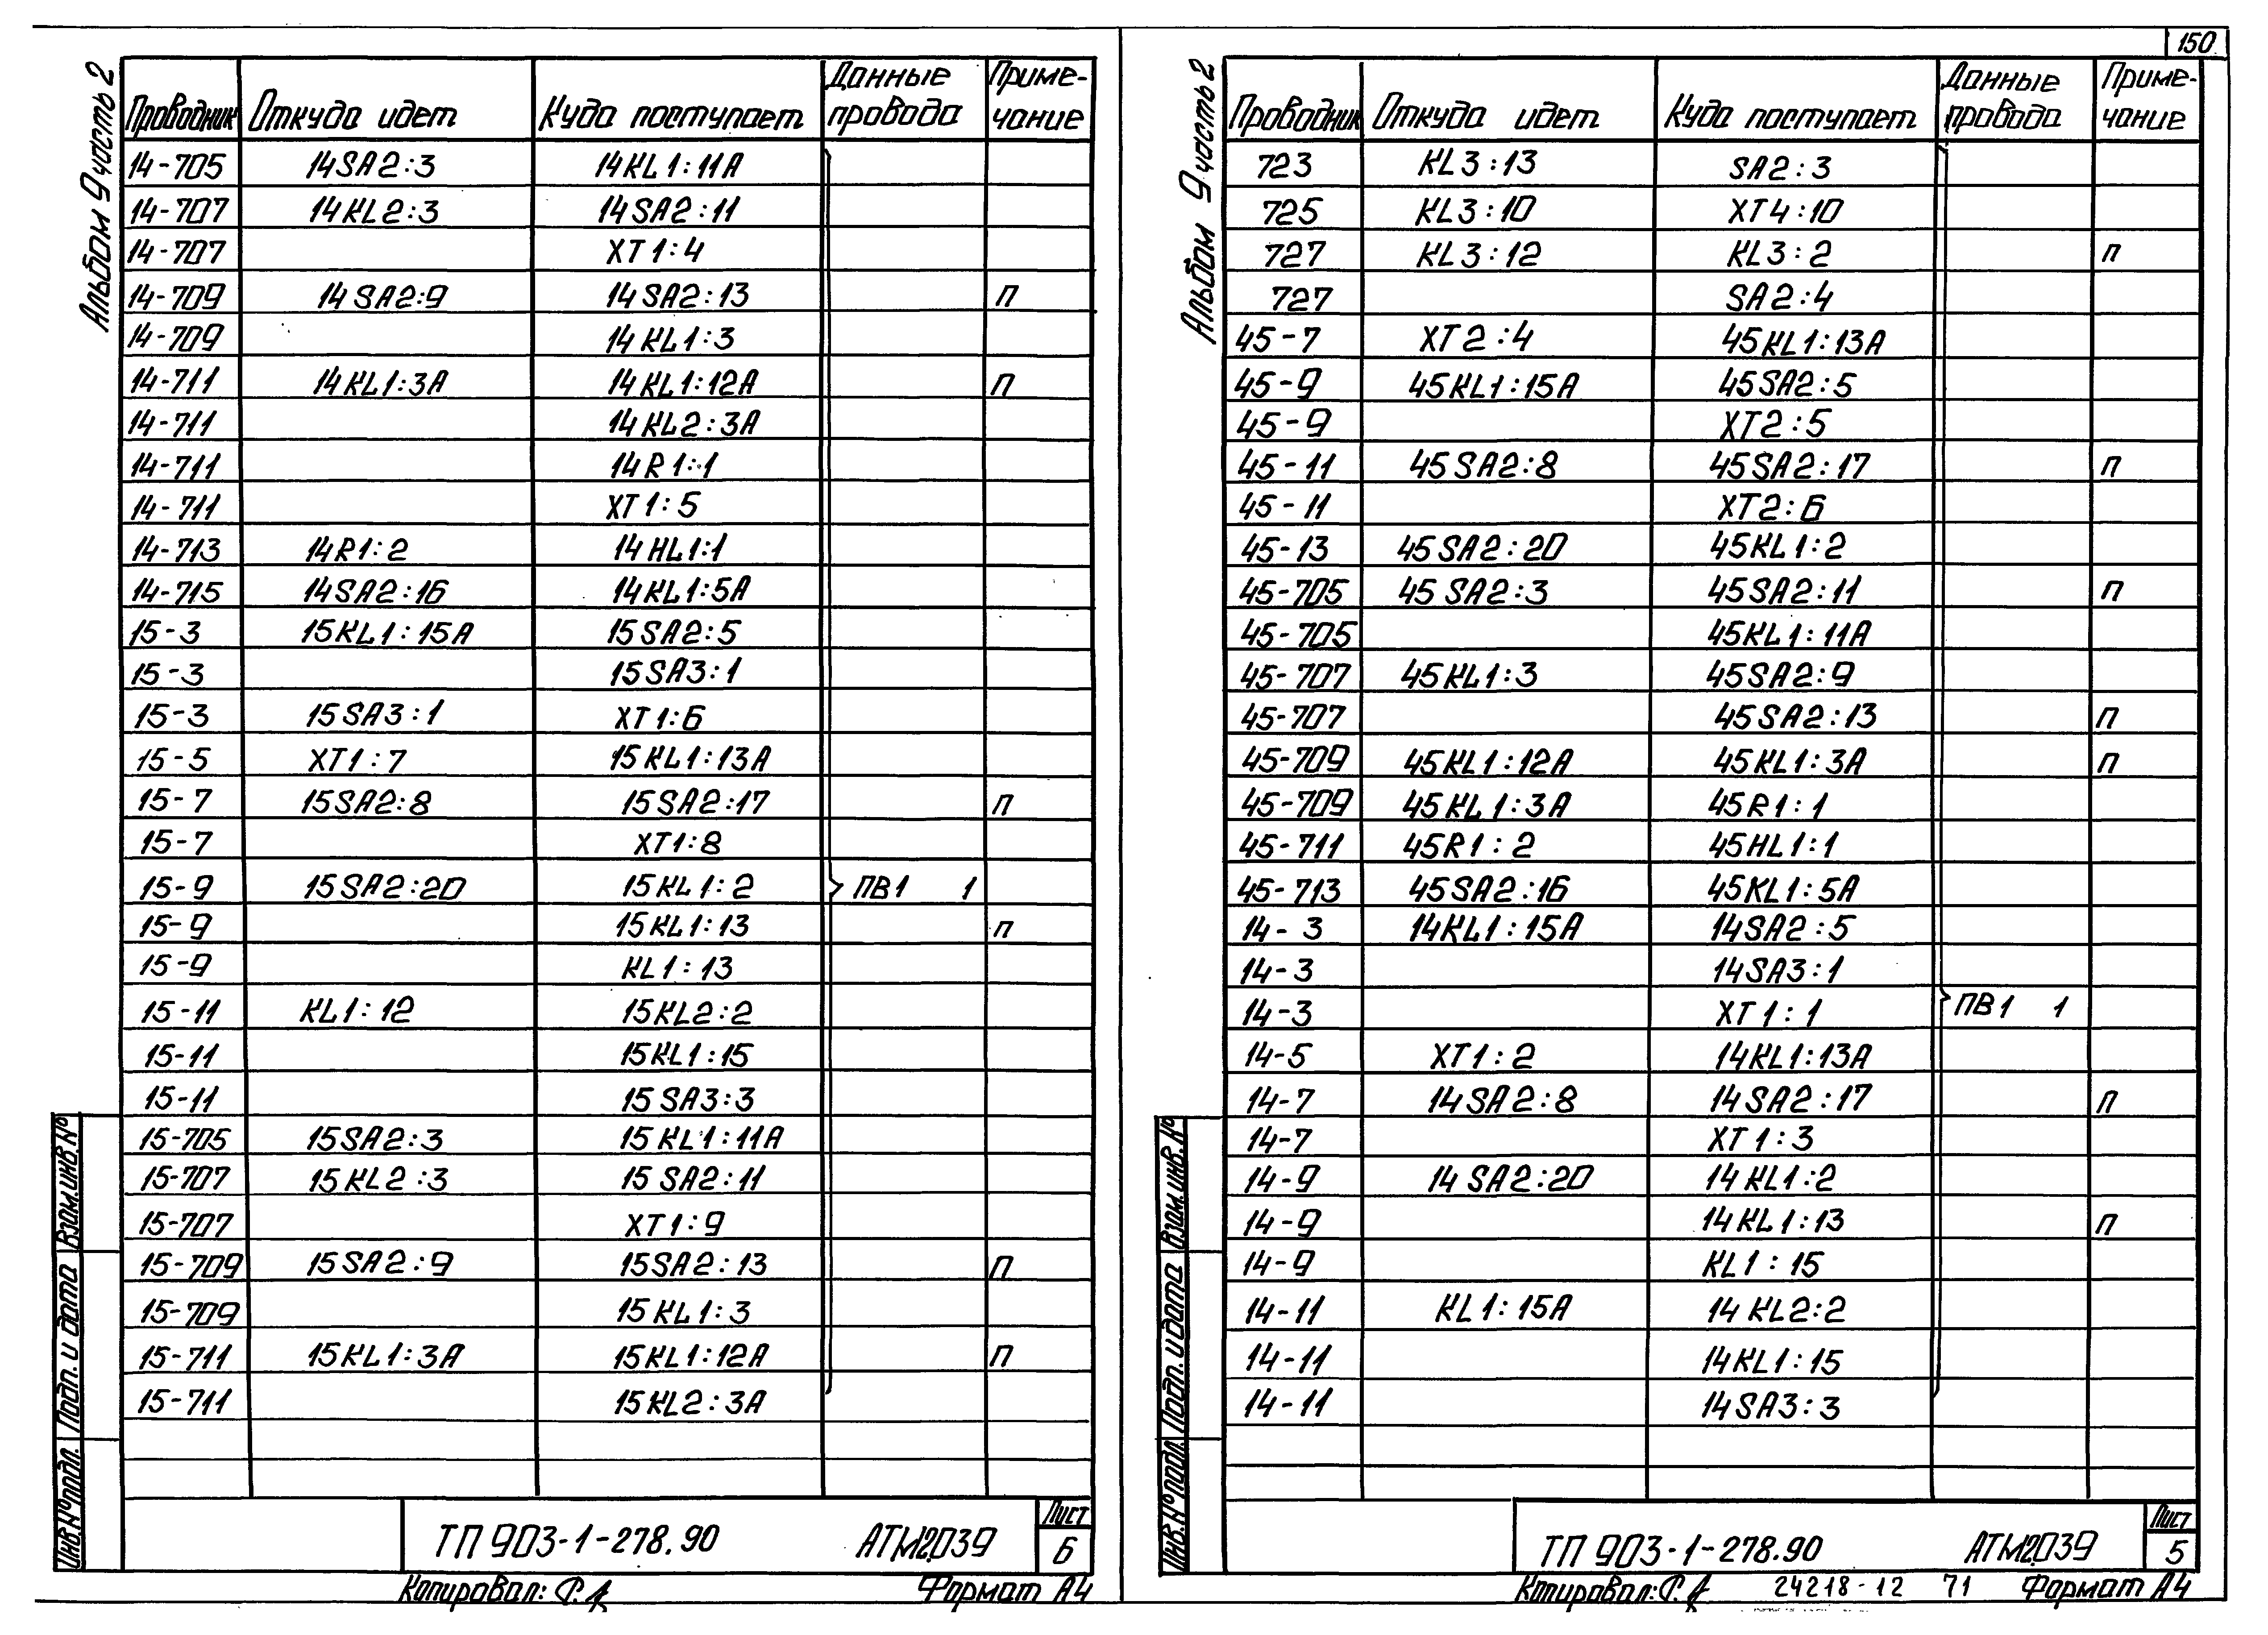 150
Альбом 9 часть 2
Проводник Откуда идет Куда поступает Данные провода Приме-чание
14-705 14SA2:3 14KL1:11A
14-707 14KL2:3 14SA2:11
14-707 XT1:4
14-709 14SA2:9 14SA2:13 П
14-709 14KL1:3
14-711 14KL1:3A 14KL1:12A П
14-711 14KL2:3A
14-711 14R1:1
14-711 XT1:5
14-713 14R1:2 14HL1:1
14-715 14SA2:16 14KL1:5A
15-3 15KL1:15A 15SA2:5
15-3 15SA3:1
15-3 15SA3:1 XT1:6
15-5 XT1:7 15KL1:13A
15-7 15SA2:8 15SA2:17 П
15-7 XT1:8
15-9 15SA2:20 15KL1:2 ПВ1 1
15-9 15KL1:13 П
15-9 KL1:13
15-11 KL1:12 15KL2:2
15-11 15KL1:15
15-11 15SA3:3
15-705 15SA2:3 15KL1:11A
15-707 15KL2:3 15SA2:11
15-707 XT1:9
15-709 15SA2:9 15SA2:13 П
15-709 15KL1:3
15-711 15KL1:3A 15KL1:12A П
15-711 15KL2:3A
Инв.№ подл. Подп. и дата Взам.инв.№
ТП 903-1-278.90 АТМ2.039 Лист 6
Копировал: Формат А4
Альбом 9 часть 2
Проводник Откуда идет Куда поступает Данные провода Приме-чание
723 KL3:13 SA2:3
725 KL3:10 XT4:10
727 KL3:12 KL3:2 П
727 SA2:4
45-7 XT2:4 45KL1:13A
45-9 45KL1:15A 45SA2:5
45-9 XT2:5
45-11 45SA2:8 45SA2:17 П
45-11 XT2:6
45-13 45SA2:20 45KL1:2
45-705 45SA2:3 45SA2:11 П
45-705 45KL1:11A
45-707 45KL1:3 45SA2:9
45-707 45SA2:13 П
45-709 45KL1:12A 45KL1:3A П
45-709 45KL1:3A 45R1:1
45-711 45R1:2 45HL1:1
45-713 45SA2:16 45KL1:5A
14-3 14KL1:15A 14SA2:5
14-3 14SA3:1
14-3 XT1:1 ПВ1 1
14-5 XT1:2 14KL1:13A
14-7 14SA2:8 14SA2:17 П
14-7 XT1:3
14-9 14SA2:20 14KL1:2
14-9 14KL1:13 П
14-9 KL1:15
14-11 KL1:15A 14KL2:2
14-11 14KL1:15
14-11 14SA3:3
Инв.№ подл. Подп. и дата Взам.инв.№
ТП 903-1-278.90 АТМ2.039 Лист 5
Копировал: 24218-12 71 Формат А4